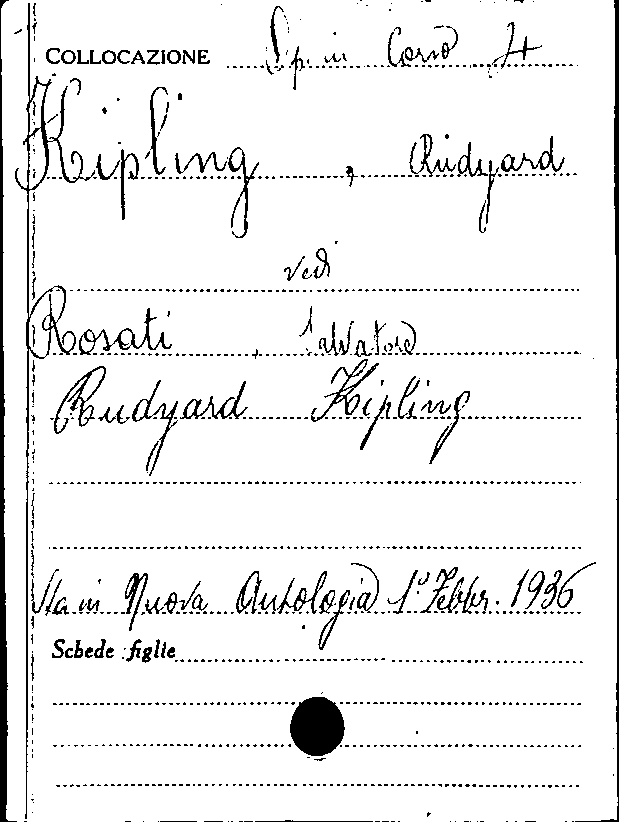 COLLOCAZIONE Sp. in Corso 74
Kipling, Rudyard
vedi
Rosati, Salvatore
Rudyard Kipling
Sta in Nuova Antologia 1º Febbr. 1936
Schede figlie